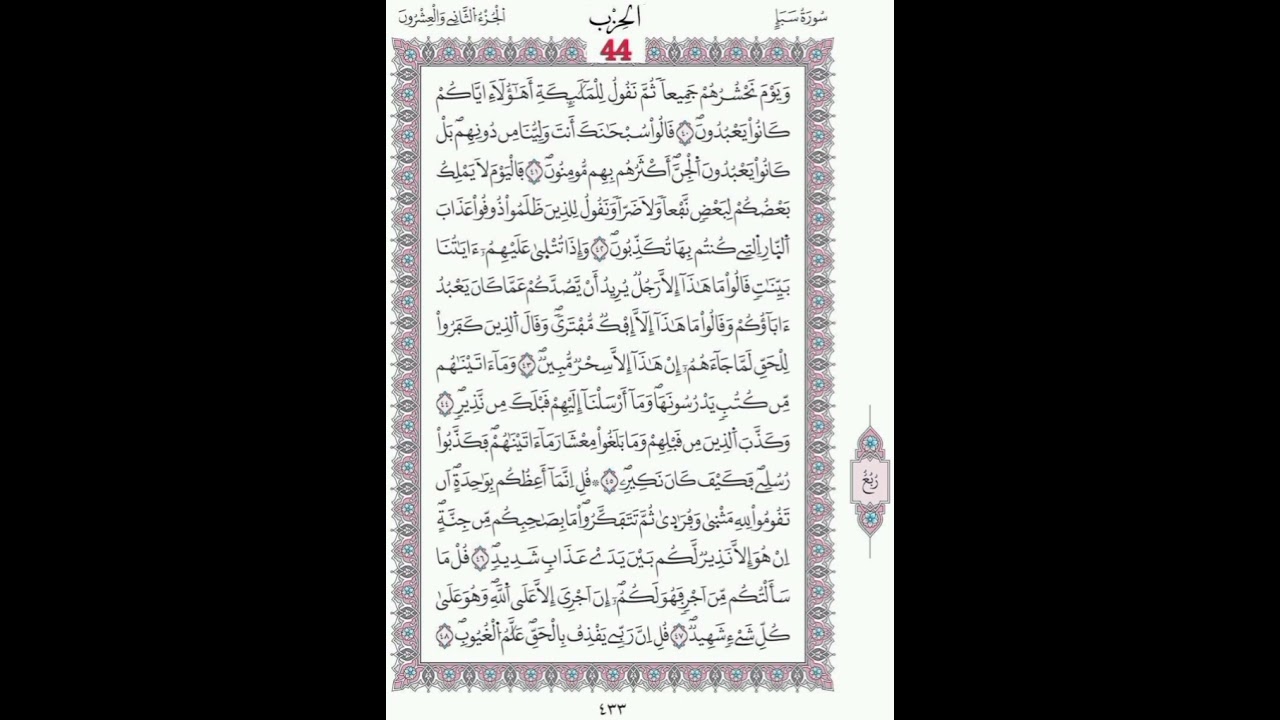 سُورَةُ سَبَإٍ
الحِزْب
الجُزْءُ الثَّانِي وَالْعِشْرُونَ
44
وَيَوْمَ نَحْشُرُهُمْ جَمِيعاٗ ثُمَّ نَقُولُ لِلْمَلَٰٓئِكَةِ أَهَٰٓؤُلَآءِ اِيَّاكُمْ
كَانُواْ يَعْبُدُونَۖ ٤٠ قَالُواْ سُبْحَٰنَكَ أَنتَ وَلِيُّنَا مِن دُونِهِمۖ بَلْ
كَانُواْ يَعْبُدُونَ اَ۬لْجِنَّۖ أَكْثَرُهُم بِهِم مُّومِنُونَۖ ٤١ فَالْيَوْمَ لَا يَمْلِكُ
بَعْضُكُمْ لِبَعْضٖ نَّفْعاٗ وَلَا ضَرّاٗ وَنَقُولُ لِلذِينَ ظَلَمُواْ ذُوقُواْ عَذَابَ
اَ۬لنّ۪ارِ اِ۬لتِے كُنتُم بِهَا تُكَذِّبُونَۖ ٤٢ وَإِذَا تُتْل۪يٰ عَلَيْهِمُۥٓ ءَايَٰتُنَا
بَيِّنَٰتٖ قَالُواْ مَا هَٰذَآ إِلَّا رَجُلٞ يُرِيدُ أَنْ يَّصُدَّكُمْ عَمَّا كَانَ يَعْبُدُ
ءَابَآؤُكُمْ وَقَالُواْ مَا هَٰذَآ إِلَّآ إِفْكٞ مُّفْتَريٗۖ وَقَالَ اَ۬لذِينَ كَفَرُواْ
لِلْحَقِّ لَمَّا جَآءَهُمُۥٓ إِنْ هَٰذَآ إِلَّا سِحْرٞ مُّبِينٞۖ ٤٣ وَمَآ ءَاتَيْنَٰهُم
مِّن كُتُبٖ يَدْرُسُونَهَاۖ وَمَآ أَرْسَلْنَآ إِلَيْهِمْ قَبْلَكَ مِن نَّذِيرٖۖ ٤٤
وَكَذَّبَ اَ۬لذِينَ مِن قَبْلِهِمْ وَمَا بَلَغُواْ مِعْشَارَ مَآ ءَاتَيْنَٰهُمْۖ فَكَذَّبُواْ
رُسُلِےۖ فَكَيْفَ كَانَ نَكِيرِۦۖ ٤٥ ۞ قُلِ اِنَّمَآ أَعِظُكُم بِوَٰحِدَةٍۖ اَن
تَقُومُواْ لِلهِ مَثْن۪يٰ وَفُرَٰد۪يٰ ثُمَّ تَتَفَكَّرُواْۖ مَا بِصَٰحِبِكُم مِّن جِنَّةٍۖ
اِنْ هُوَ إِلَّا نَذِيرٞ لَّكُم بَيْنَ يَدَےْ عَذَابٖ شَدِيدٖۖ ٤٦ قُلْ مَا
سَأَلْتُكُم مِّنَ اَجْرٖ فَهُوَ لَكُمُۥٓۖ إِنَ اَجْرِيَ إَِلَّا عَلَى اَ۬للَّهِۖ وَهُوَ عَلَىٰ
كُلِّ شَےْءٖ شَهِيدٞۖ ٤٧ قُلِ اِنَّ رَبِّے يَقْذِفُ بِالْحَقِّۖ عَلَّٰمُ اُ۬لْغُيُوبِۖ ٤٨
رُبُعُ
٤٣٣